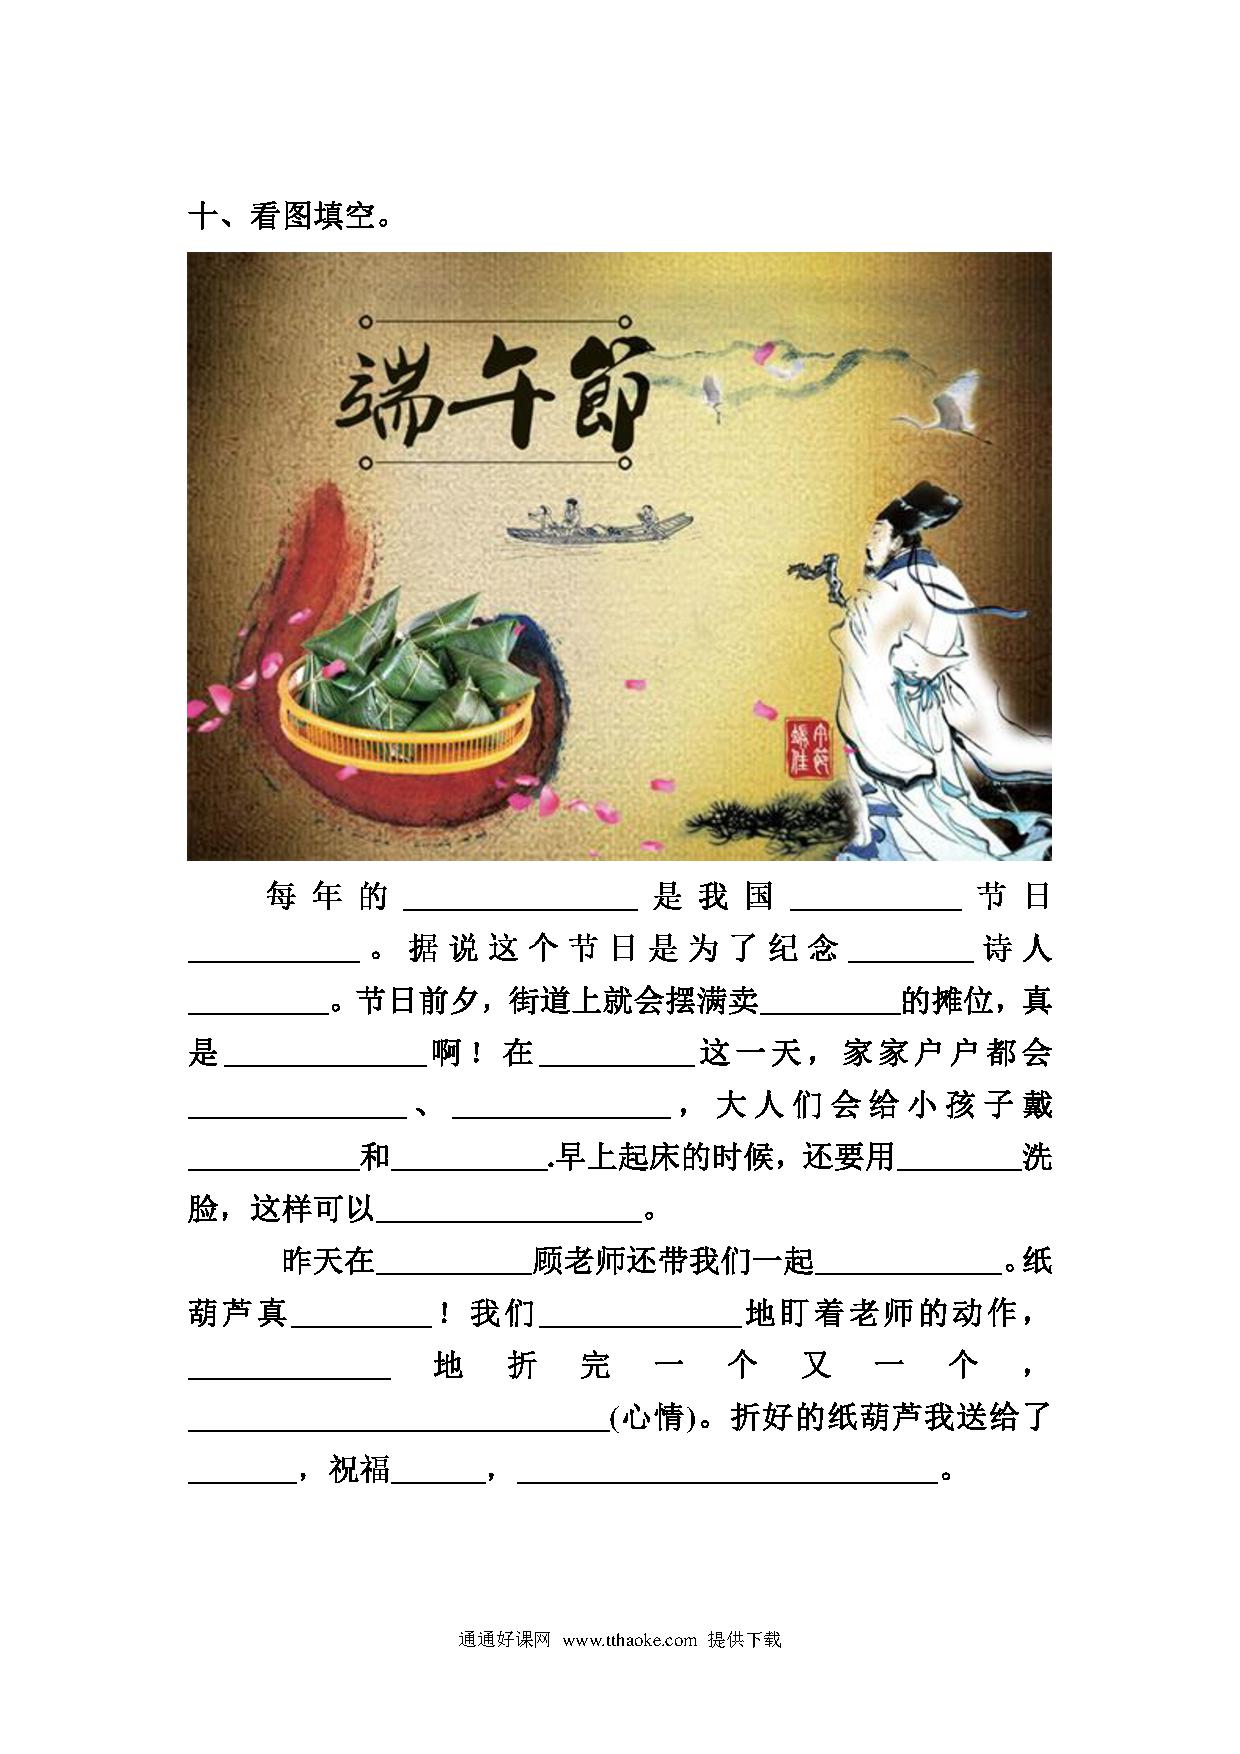 十、看图填空。
端午節
每年的_______________是我国___________节日
___________。据说这个节日是为了纪念________诗人
_________。节日前夕，街道上就会摆满卖_________的摊位，真
是_____________啊！在__________这一天，家家户户都会
______________、______________，大人们会给小孩子戴
___________和__________.早上起床的时候，还要用________洗
脸，这样可以_________________。
昨天在__________顾老师还带我们一起____________。纸
葫芦真_________！我们_____________地盯着老师的动作，
_____________地折完一个又一个，
___________________________(心情)。折好的纸葫芦我送给了
_______，祝福______，___________________________。
通通好课网 www.tthaoke.com 提供下载